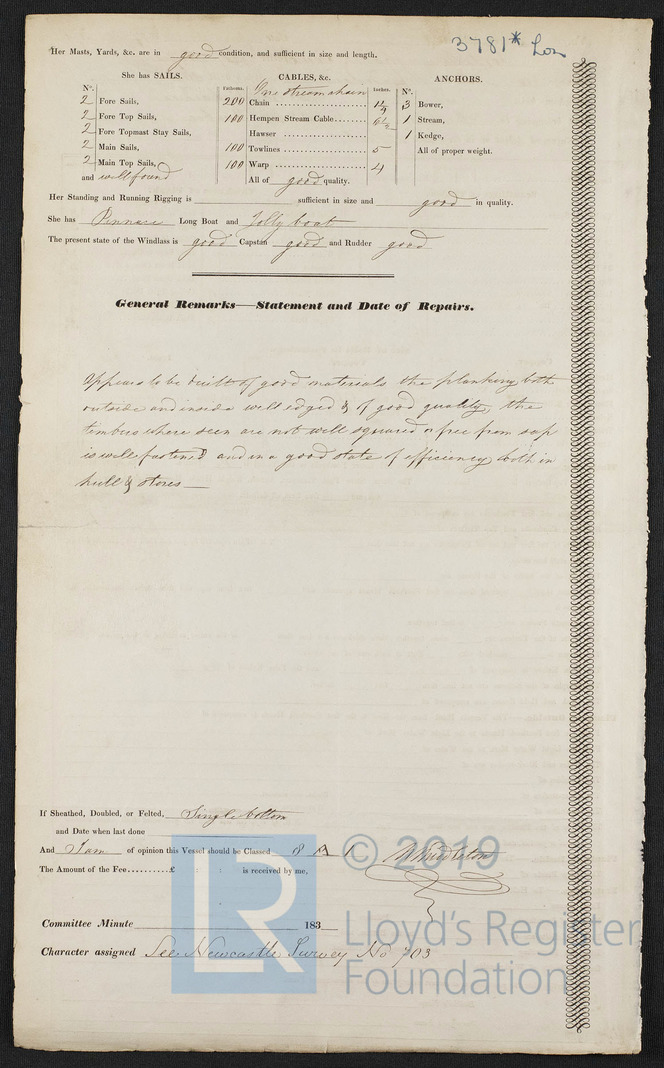 3781* Lon
Her Masts, Yards, &c. are in good condition, and sufficient in size and length.
She has SAILS. CABLES, &c. ANCHORS.
N°. Fathoms. One stream chain Inches. N°.
2 Fore Sails, 200 Chain 3 Bower,
2 Fore Top Sails, 100 Hempen Stream Cable 6½ 1 Stream,
2 Fore Topmast Stay Sails, Hawser 1 Kedge,
2 Main Sails, 100 Towlines 5 All of proper weight.
2 Main Top Sails, 100 Warp 4
and well found All of good quality.
Her Standing and Running Rigging is sufficient in size and good in quality.
She has Pinnace Long Boat and Jolly boat
The present state of the Windlass is good Capstan good and Rudder good
General Remarks—Statement and Date of Repairs.
Appears to be built of good materials the planking both
outside and inside well edged & of good quality, the
timbers where seen are not well squared or free from sap
is well fastened and in a good state of efficiency both in
hull & stores—
If Sheathed, Doubled, or Felted, Single bottom
and Date when last done
And I am of opinion this Vessel should be Classed 8 A 1
The Amount of the Fee..........£ : : is received by me,
Committee Minute 183
Character assigned See Newcastle Survey No 703
© 2019
Lloyd's Register
Foundation
LR